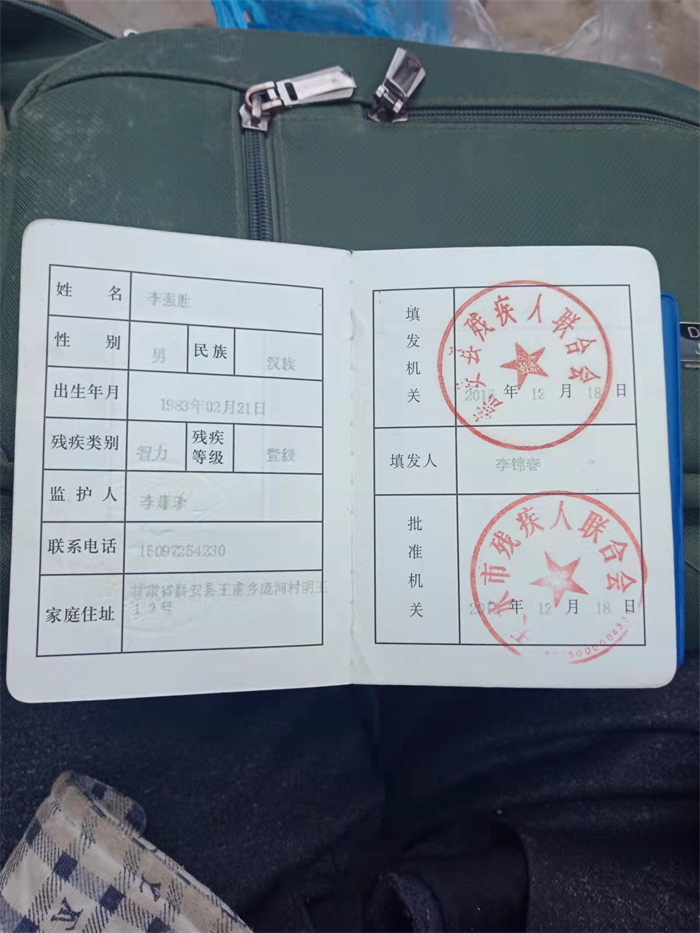 姓名 李强胜
性别 男 民族 汉族
出生年月 1983年02月21日
残疾类别 智力 残疾等级 壹级
监护人 李
联系电话 15097254230
家庭住址 甘肃省秦安县王甫乡庞河村阴王
12号
填发机关 秦安县残疾人联合会
201 年 12 月 18 日
填发人 李锦春
批准机关 天水市残疾人联合会
201 年 12 月 18 日